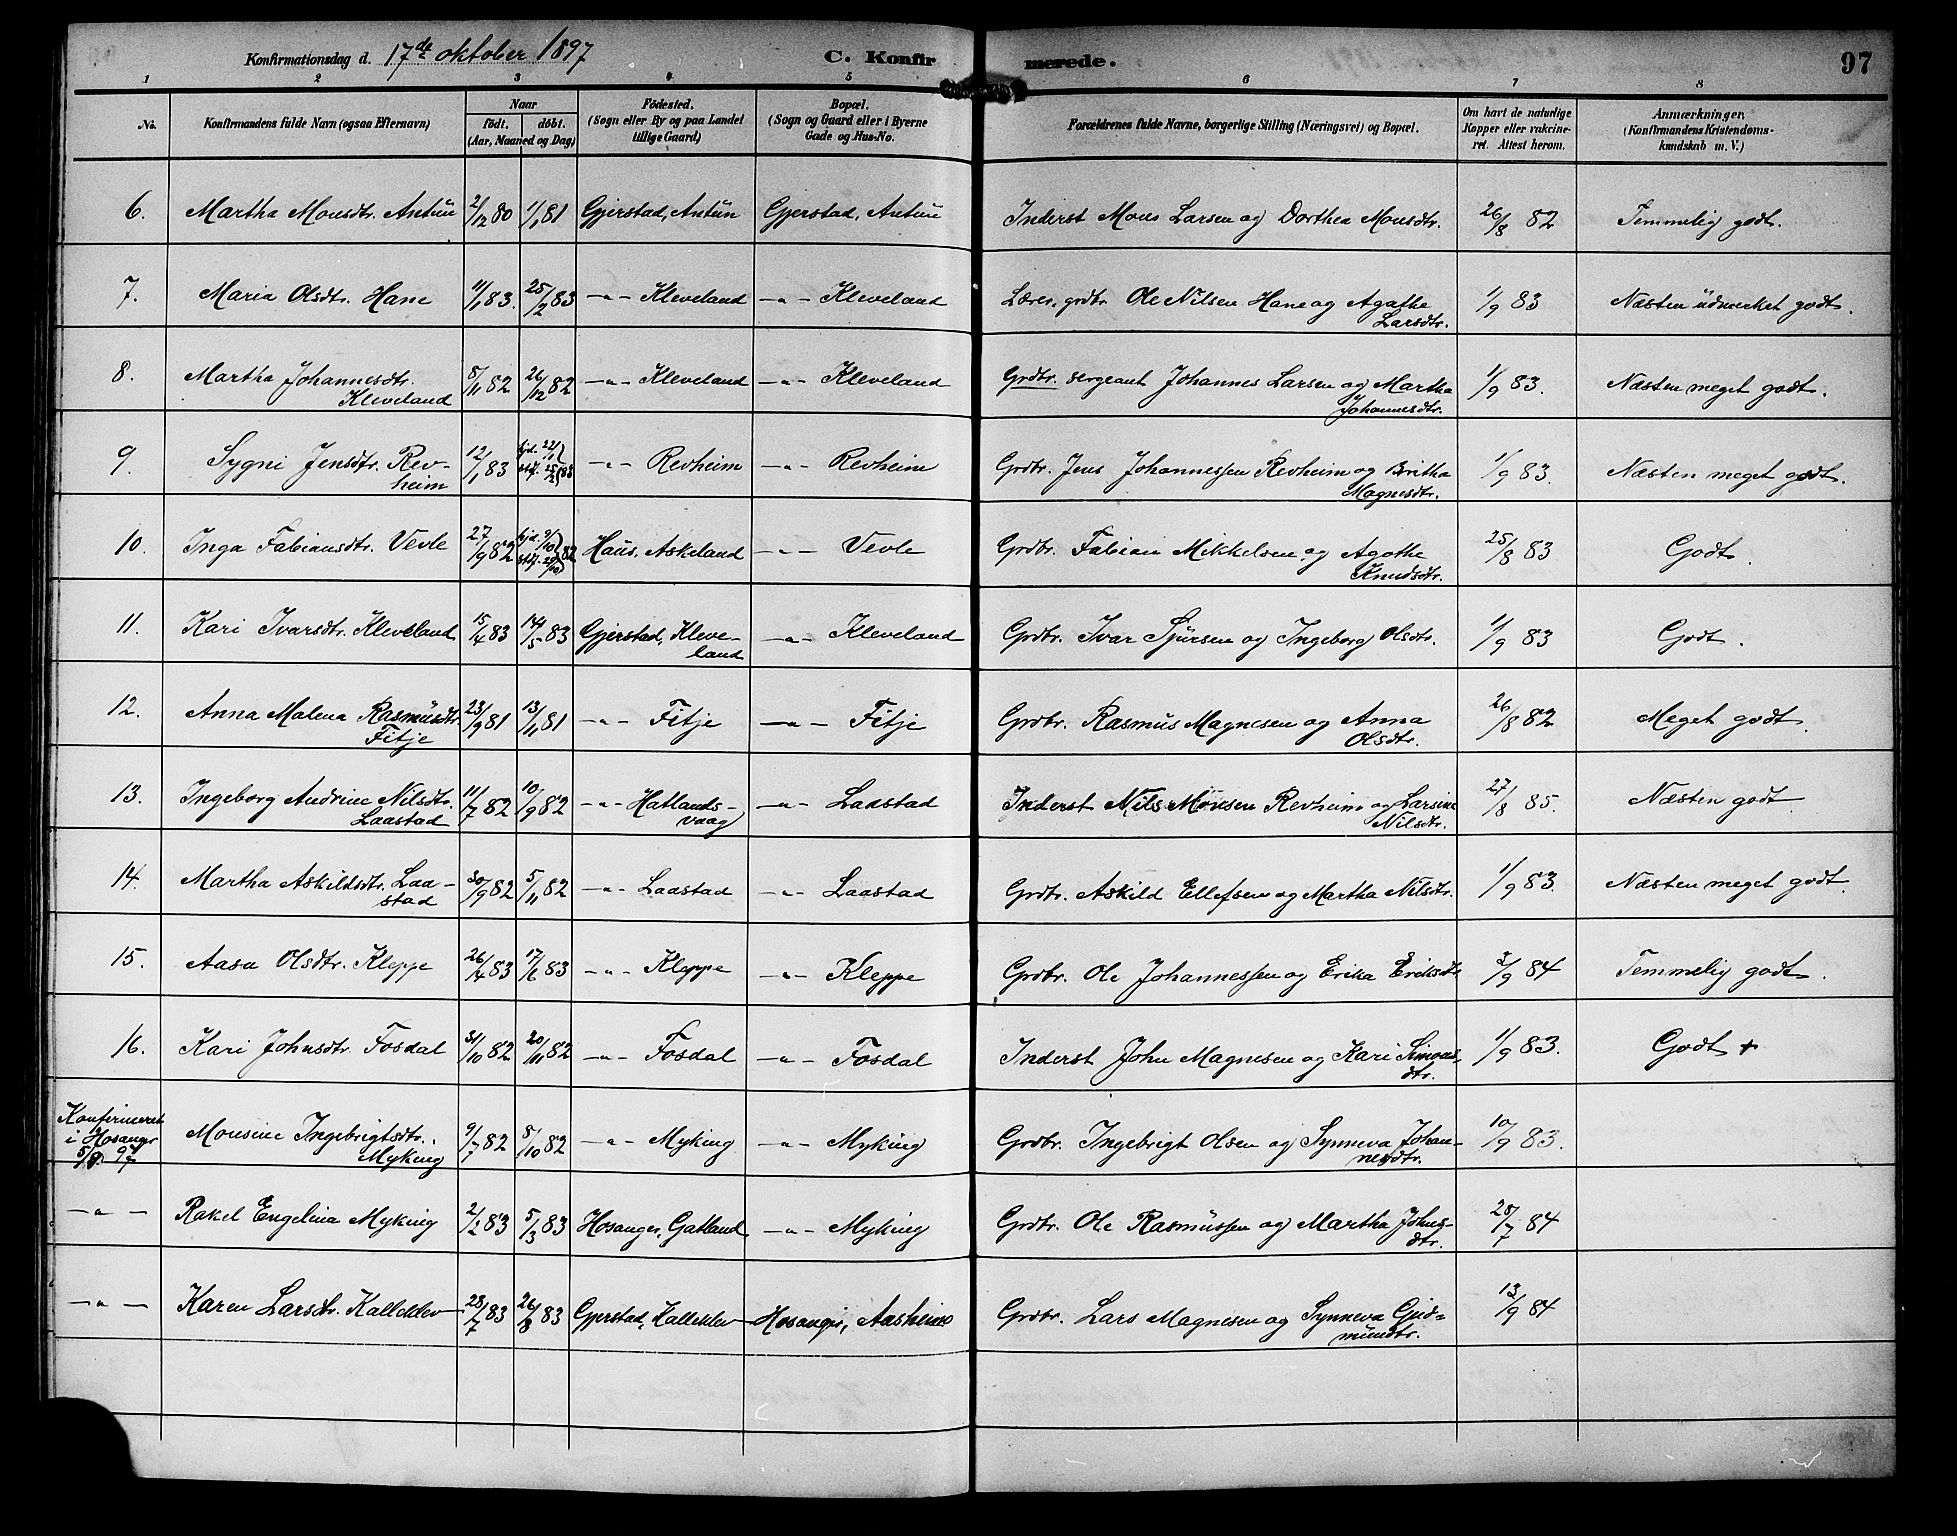 Konfirmationsdag d. 17de oktober 1897 C. Konfirmerede. 97
1 2 3 4 5 6 7 8
No. Konfirmandens fulde Navn (ogsaa Efternavn) Naar födt. döbt. (Aar, Maaned og Dag) Födested. (Sogn eller By og paa Landet tillige Gaard) Bopæl. (Sogn og Gaard eller i Byerne Gade og Hus-No. Forældrenes fulde Navne, borgerlige Stilling (Næringsvei) og Bopæl. Om havt de naturlige Kopper eller vakcineret. Attest herom. Anmærkninger. (Konfirmandens Kristendomskundskab m. V.)
6. Martha Monsdtr. Antun 2/12 80 1/1 81 Gjerstad, Antun Gjerstad, Antun Inderst Mons Larsen og Dorthea Monsdtr. 26/8 82 Temmelig godt.
7. Maria Olsdtr. Hane 11/1 83. 25/2 83 -"- Kleveland -"- Kleveland Lærer, grdbr. Ole Nilsen Hane og Agathe Larsdtr. 1/9 83 Næsten udmerket godt.
8. Martha Johannesdtr. Kleveland 8/11 82 26/12 82 -"- Kleveland -"- Kleveland Grdbr. sergeant Johannes Larsen og Martha Johannesdtr. 1/9 83. Næsten meget godt.
9. Sygni Jensdtr. Revheim 12/1 83 hjd. 22/1 stdf. 25/2 83 -"- Revheim -"- Revheim Grdbr. Jens Johannessen Revheim og Britha Magnesdtr. 1/9 83. Næsten meget godt.
10. Inga Fabiansdtr. Vevle 27/9 82 hjd. 9/10 stdf. 29/10 82 Haus, Askeland -"- Vevle Grdbr. Fabian Mikkelsen og Agathe Knudsdtr. 25/8 83 Godt.
11. Kari Ivarsdtr. Kleveland 15/4 83 14/5 83 Gjerstad, Kleveland -"- Kleveland Grdbr. Ivar Sjursen og Ingeborg Olsdtr. 1/9 83 Godt.
12. Anna Malena Rasmusdtr. Fitje 23/9 81 13/11 81 -"- Fitje -"- Fitje Grdbr. Rasmus Magnesen og Anna Olsdtr. 26/8 82 Meget godt.
13. Ingeborg Andrine Nilsdtr. Laastad 11/7 82 10/9 82 -"- Hatlandsvaag -"- Laastad Inderst Nils Monsen Revheim og Larsine Nilsdtr. 27/8 85. Næsten godt
14. Martha Askildsdtr. Laastad 30/9 82 5/11 82 -"- Laastad -"- Laastad Grdbr. Askild Ellefsen og Martha Nilsdtr. 1/9 83. Næsten meget godt.
15. Aasa Olsdtr. Kleppe 26/4 83 17/6 83 -"- Kleppe -"- Kleppe Grdbr. Ole Johannessen og Erika Eriksdtr 3/9 84 Temmelig godt.
16. Kari Johnsdtr. Fosdal 31/10 82 20/11 82 -"- Fosdal -"- Fosdal Inderst John Magnesen og Kari Simonsdtr. 1/9 83. Godt +
Konfirmeret i Hosanger 5/9. 97 Monsine Ingebrigtsdtr. Myking 9/7 82 8/10 82 -"- Myking -"- Myking Grdbr. Ingebrigt Olsen og Synneva Johannesdtr. 10/9 83.
-"- Rakel Engelina Myking 2/2 83 5/3 83 Hosanger, Gatland -"- Myking Grdbr. Ole Rasmussen og Martha Johnsdtr. 28/7 84
-"- Karen Larsdtr. Kalleklev 28/7 83 26/8 83 Gjerstad, Kalleklev Hosanger, Aasheim Grdbr. Lars Magnesen og Synneva Gudmundtr. 13/9 84